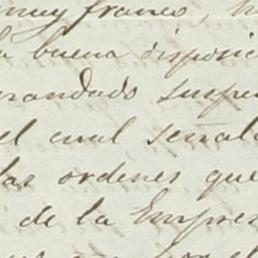 muy franco,
la buena disposic
mandado suspen
el cual señala
las ordenes que
de la Empres